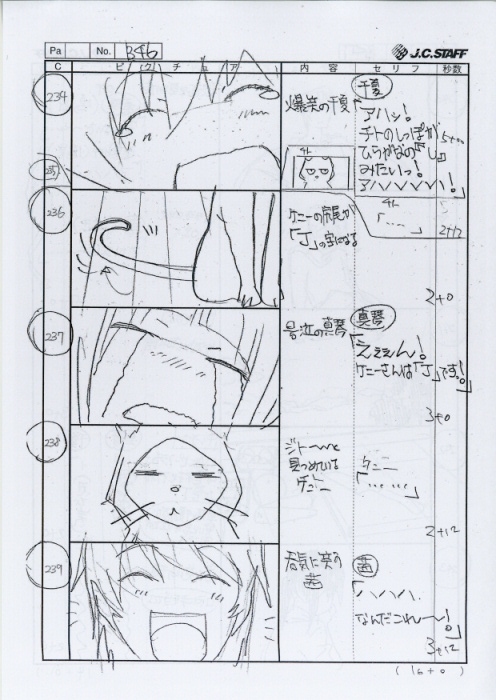 Pa
No. 346
J.C.STAFF
C
ピクチュア
内容
セリフ
秒数
234
爆笑の千夏
千夏
「アハッ!
チトのしっぽが
ひらがなの「し」
みたいっ!
アハハハハ!」
5+0
235
チト
チト
「……」
2+12
236
ケニーの尻尾が
「J」の字になる
2+0
237
号泣の真琴
真琴
「えぇぇん!
ケニーさんは「J」です。!」
3+0
238
ジト〜〜と
見つめている
ケニー
ケニー
「……」
2+12
239
呑気に笑う
茜
茜
「ハハハ、
なんだこれ〜〜!。」
3+12
(16+0)